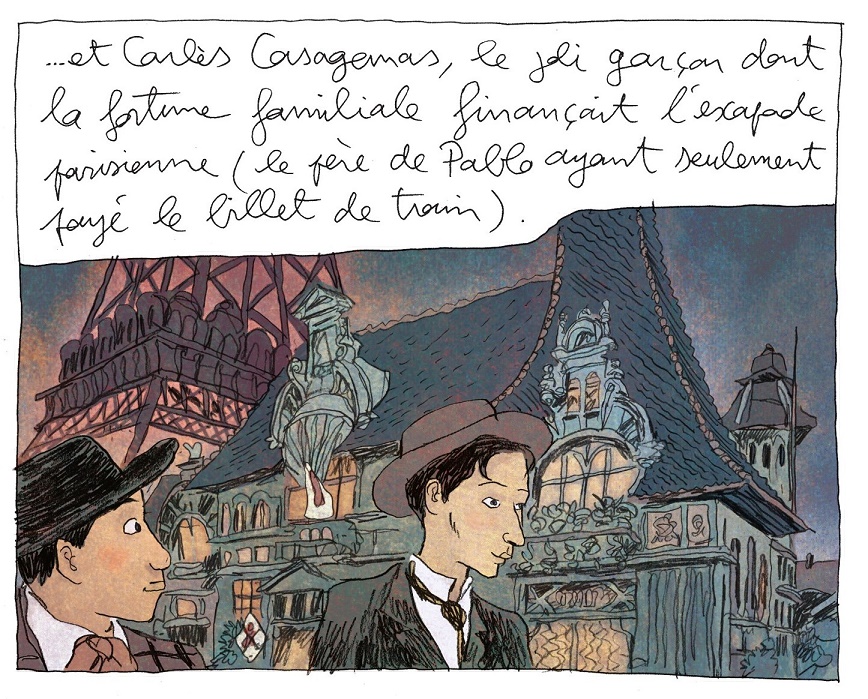 ...et Carlès Casagemas, le joli garçon dont
la fortune familiale finançait l'escapade
parisienne (le père de Pablo ayant seulement
payé le billet de train).